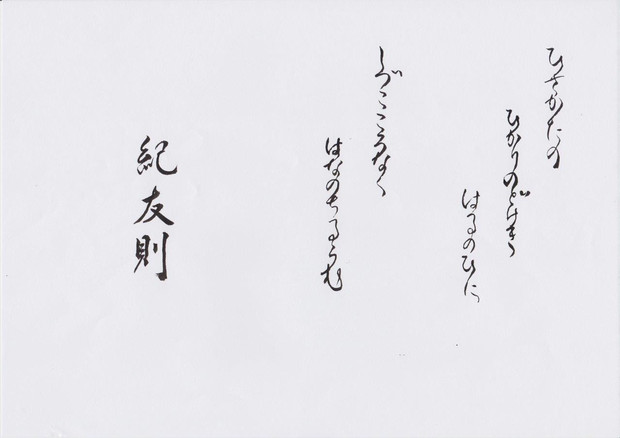 ひさかたの
ひかりのどけき
はるのひに
しづこころなく
はなのちるらむ
紀友則